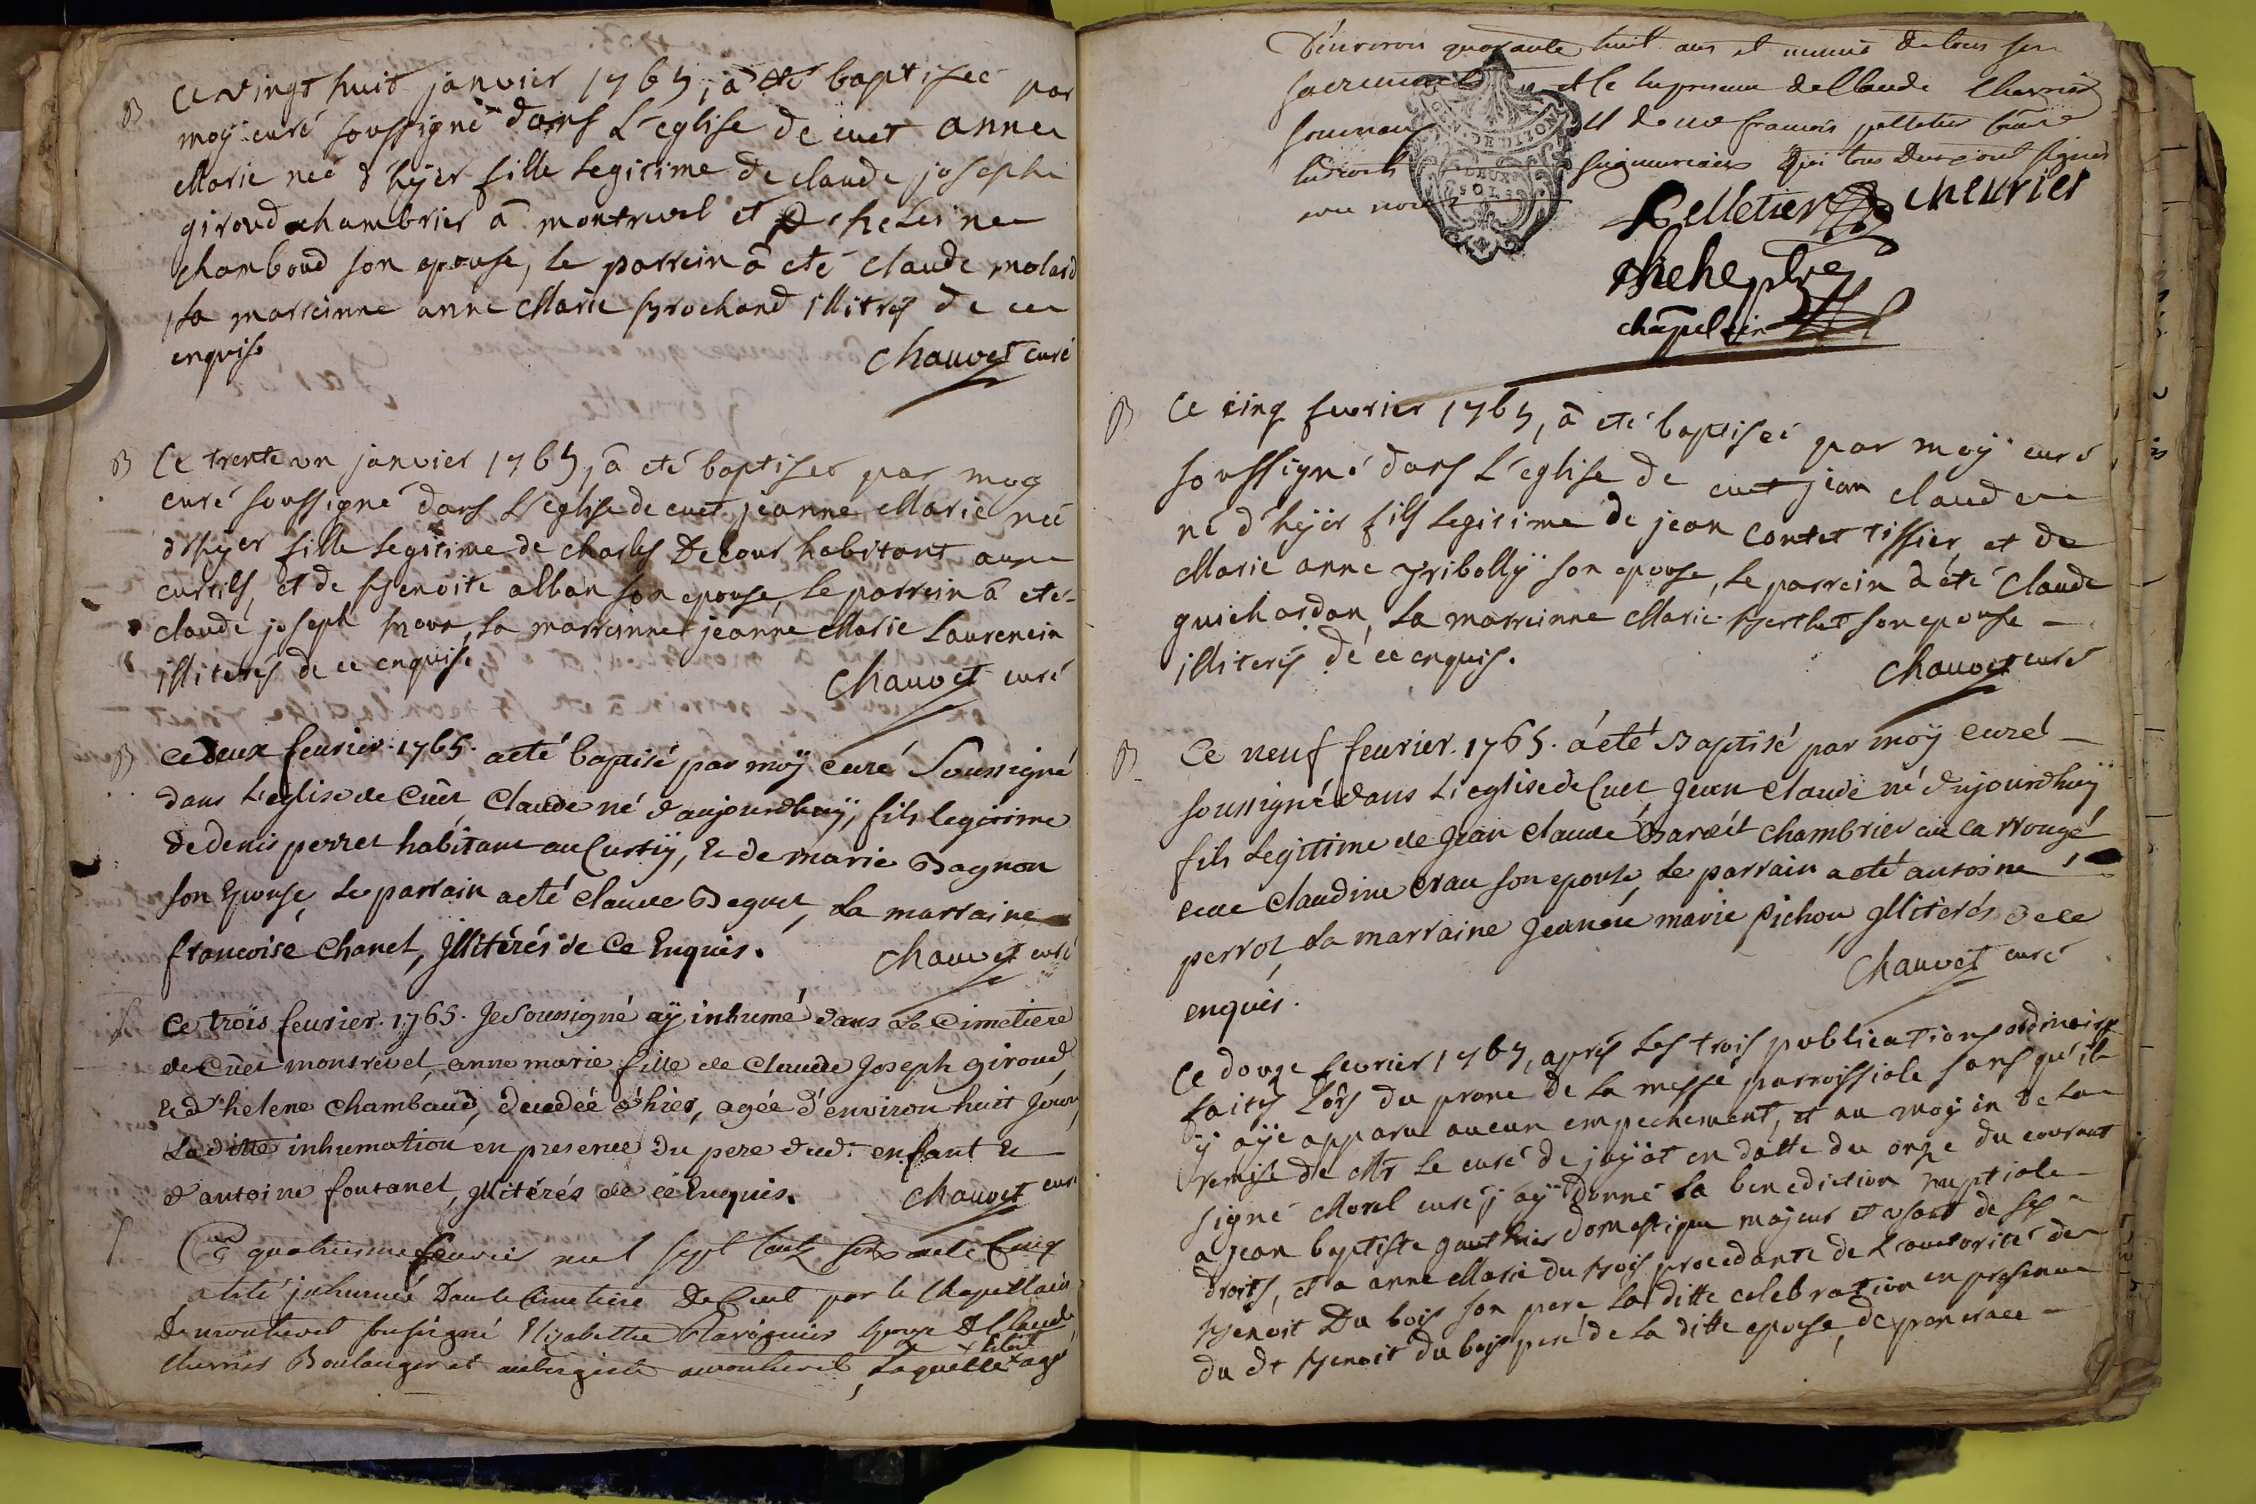 B Ce vingt huit janvier 1765, à été baptisée par
moÿ curé soussigné dans L'eglise de cuet anne
Marie neé d'hÿer fille Legitime de claude joseph
giroud chambrier à montrevel et d'helesne
chamboud son epouse, le parrein à eté claude molard
La marreinne anne Marie brochand illitres de ce
enquis
Chauvet curé
B Ce trente un janvier 1765, à eté baptisee par moy
curé soussigné dans L'eglise de cuet jeanne Marie neé
d'hÿer fille Legitime de charles Decour habitant aux
curtils, et de Benoite alban son epouse, Le parrein à eté
claude joseph, La marreinne jeanne Marie Laurencin
illiterés de ce enquis.
Chauvet curé
B Ce deux feurier. 1765. a eté baptisé par moÿ curé Soussigné
dans L'eglise de Cuët, Claude né d'aujourdhuÿ, fils legitime
de denis perret habitant au Curtiÿ, & de marie Bagnon
son Epouse, Le parrain a eté Claude Beguet, La marraine
francoise Chanel, Jllitérés de Ce Enquis.
Chauvet curé
Ce troïs feurier. 1765. Je Soussigné aÿ inhumé dans Le Cimetiere
de Cüet montrevel, anne marie fille de Claude Joseph giroud,
& d'helene Chambaud, decedéé d'hier, agée d'environ huit Jours,
La ditte inhumation en presence du pere dud. enfant &
d'antoine fontanel, Jllitérés de cë Enquis.
Chauvet curé
Ce quatriesme feurier mil sept cents soixante Cinq
a été jnhumée Dans le Cimetiere De Cuet par le Chapellain
De montrevel sousigné Elizabethe epouse De Claude
Cheurier Boulanger et aubergiste a montrevel, Laquelle agé
D'environ quarante huit ans et munie de tous ses
sacremens et le en presence de Claude Cheurier
et de me francois pelletier
seigneuriaux qui tous Deux ont signés
avec nous
Pelletier Cheurier
ptre
chapelain
G.N. DE DIJON
DEUX SOLS
B Ce cinq feurier 1765, à eté baptisée par moÿ curé
soussigné dans L'eglise de cuet jean claude
né d'hÿer fils Legitime de jean contet tissier, et de
Marie anne son epouse, Le parrein à été Claude
guichardon, La marreinne Marie Berthet son epouse
illiterés de ce enquis.
Chauvet curé
B Ce neuf feurier. 1765. á eté Baptisé par moÿ Curé
soussigné dans L'eglise de Cuet, Jean Claude né d'ujourdhuÿ
fils Legittime de Jean Claude chambrier au La rrougé
et de Claudine son epouse, Le parrain a eté antoine
perrot La marraine Jeanne marie Pichon, Jlliterés de Ce
enquis.
Chauvet curé
Ce douze feurier 1765, aprés Les trois publications ordinaires
faites Lors du prone de La messe parroissiale sans qu'il
ÿ aÿe apparu aucun empechement, et au moÿin de La
remise de Mr Le curé de jaÿat en datte du onze du courant
signé Morel curé j'aÿ donné La benediction nuptiale
a jean baptiste gauthier domestique majeur et usant de ses
droits, et a anne Marie du bois procedante de L'authorité de
Benoit Du bois son pere La ditte celebration en presence
du dt Benoit du bois pere de La ditte epouse, de